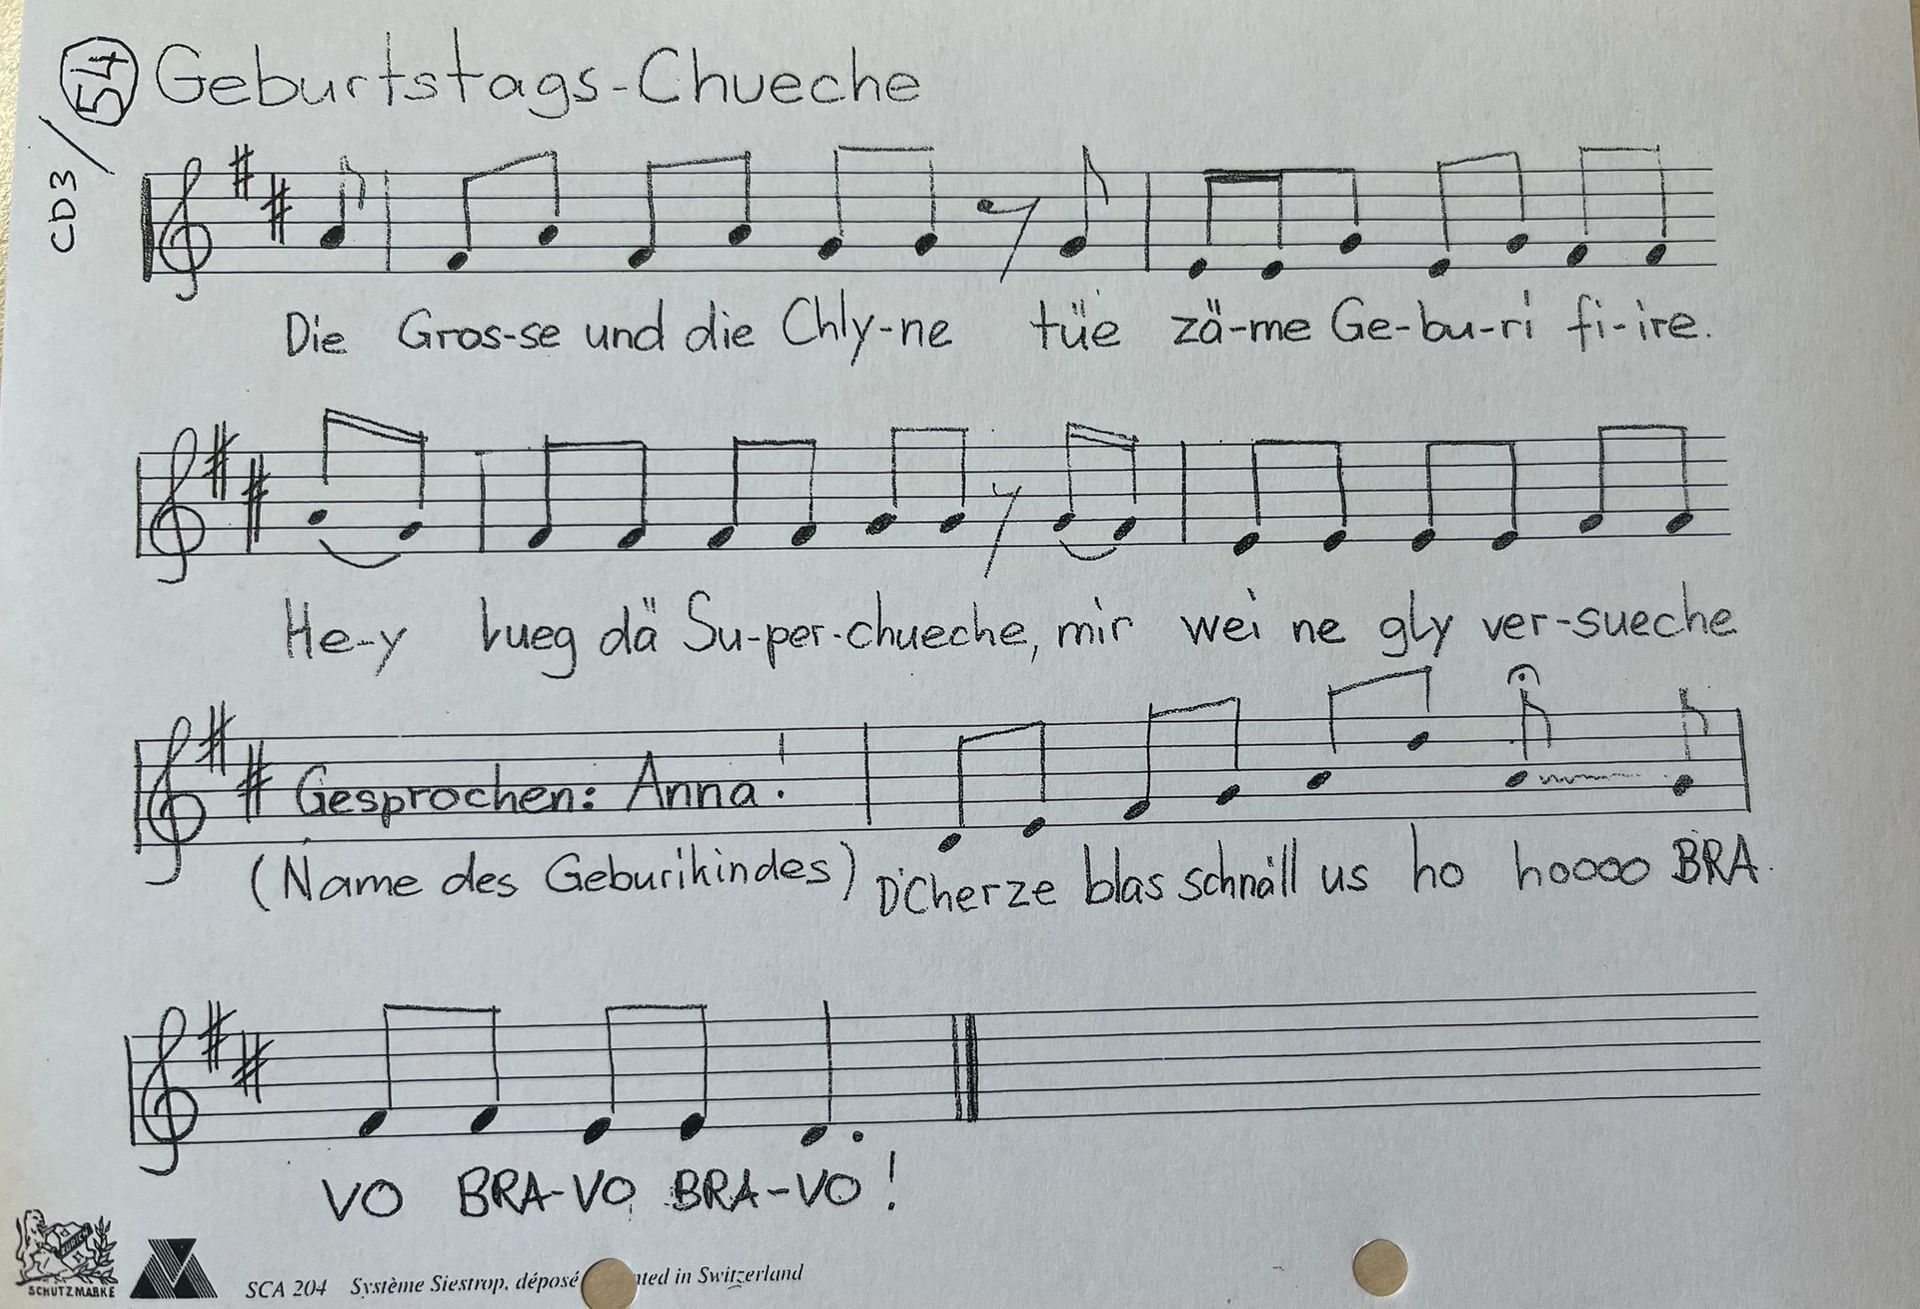 54 Geburtstags-Chueche
CD3/
Die Gros-se und die Chly-ne tüe zä-me Ge-bu-ri fi-ire.
He-y lueg dä Su-per-chueche, mir wei ne gly ver-sueche
Gesprochen: Anna!
(Name des Geburikindes) D'Cherze blas schnäll us ho hoooo BRA
VO BRA-VO BRA-VO!
SCHUTZMARKE SCA 204 Système Siestrop, déposé in Switzerland